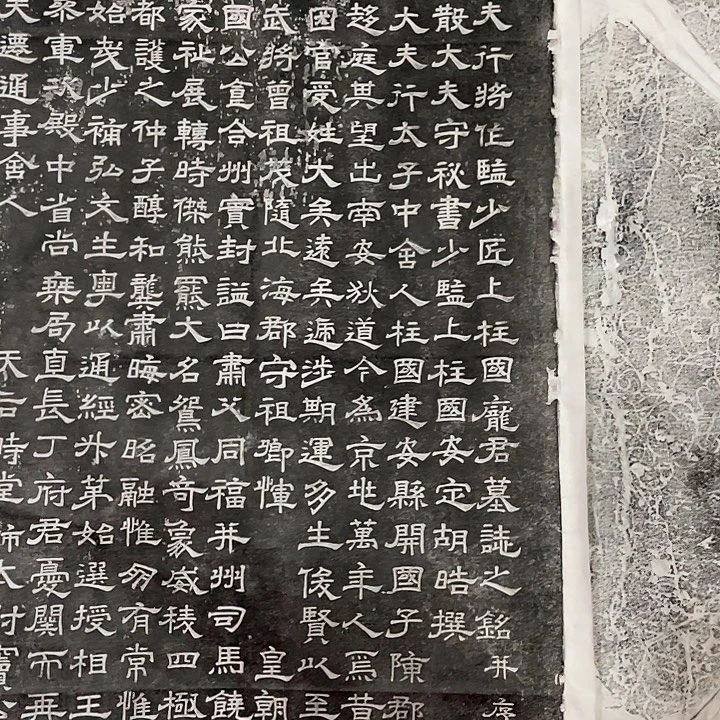 夫行將作監少匠上柱國龐君墓誌之銘并序
散大夫守祕書少監上柱國安定胡晧撰
大夫行太子中舍人柱國建安縣開國子陳郡
趍庭其望出南安狄道今為京地萬年人焉昔
因官受姓大矣遠矣遞涉期運多生俊賢以至
武將曾祖茂隨北海郡守祖卿惲 皇朝
國公食合州實封謚曰肅父同福并州司馬饒
家祉展轉時傑熊羆大名鴛鳳奇象威稜四極
都護之仲子醇和龔肅晦密昭融惟明有常惟
始少補弘文生粵以通經升第始選授相王
軍次殿中省尚乘局直長丁府君憂闋而再
遷通事舍人 天后時